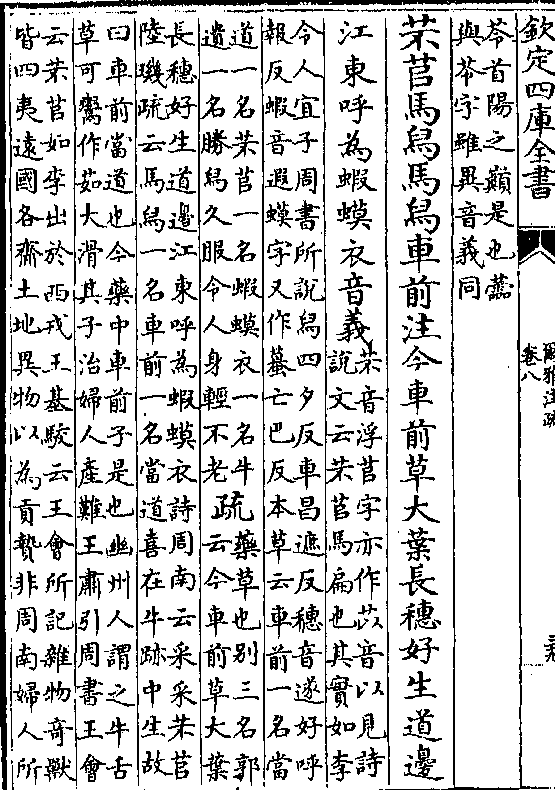 欽定四庫全書
爾雅注疏
卷八
苓首陽之巔是也蘦
與苓字雖異音義同
芣苢馬舄馬舄車前注今車前草大葉長穗好生道邊
江東呼為蝦蟆衣音義
芣音浮苢字亦作苡音以見詩
說文云芣苢馬扁也其實如李
令人宜子周書所說舄四夕反車昌遮反穗音遂好呼
報反蝦音遐蟆字又作蟇亡巴反本草云車前一名當
道一名芣苢一名蝦蟆衣一名牛
遺一名勝舄久服令人身輕不老
疏
藥草也别三名郭
云今車前草大葉
長穗好生道邊江東呼為蝦蟆衣詩周南云采采芣苢
陸璣疏云馬舄一名車前一名當道喜在牛跡中生故
曰車前當道也今藥中車前子是也幽州人謂之牛舌
草可鬻作茹大滑其子治婦人產難王肅引周書王會
云芣苢如李出於西戎王基駁云王會所記雜物奇獸
皆四夷遠國各齎土地異物以為貢贄非周南婦人所